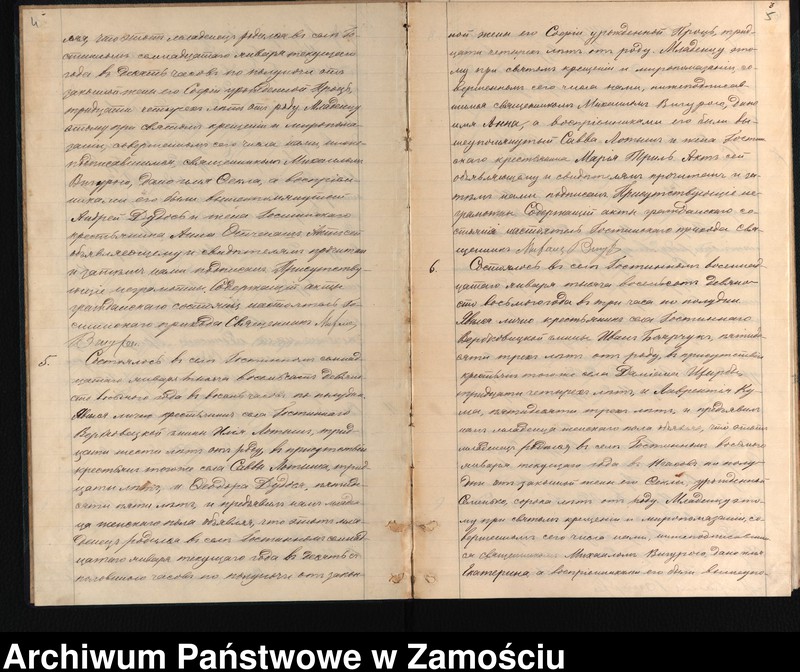 4
ляя, что этотъ младенецъ родился въ селѣ Го-
стинномъ семнадцатого января текущаго
года въ десять часовъ по полуночи отъ
законной жены его Софіи урожденной Процъ,
тридцати четырехъ лѣтъ отъ роду Младенцу
этому при святомъ крещеніи и миропома-
заніи, совершенномъ сего числа нами, ниже-
подписавшимся, священникомъ Михаиломъ
дано имя Ѳекла, а воспріем-
никами его были вышеупомянутый
Андрей и жена Гостиннаго
крестьянина Анна Актъ сей
объявляющему и свидѣтелямъ прочитанъ
и затѣмъ нами подписанъ Присутству-
ющіе неграмотны. Содержащій акты
гражданскаго состоянія настоятель Го-
стиннаго прихода Священникъ
5.
Состоялось въ селѣ Гостинномъ семнад-
цатаго января тысяча восемьсотъ девяно-
сто восьмого года въ восемь часовъ по полудни.
Явился лично крестьянинъ села Гостиннаго
Вербковицкой гмины Илья трид-
цати шести лѣтъ отъ роду, въ присутствіи
крестьянъ того же села Саввы трид-
цати лѣтъ, и Ѳеодора пятиде-
сяти пяти лѣтъ и предъявилъ намъ младен-
ца женскаго пола объявляя, что этотъ мла-
денецъ родился въ селѣ Гостинномъ семнад-
цатаго января текущаго года въ десять съ
половиною часовъ по полуночи отъ закон-
5
ной жены его Софіи урожденной Процъ, трид-
цати четырехъ лѣтъ отъ роду. Младенцу это-
му при святомъ крещеніи и миропомазаніи, со-
вершенномъ сего числа нами, нижеподписав-
шимся священникомъ Михаиломъ дано
имя Анна, а воспріемниками его были вы-
шеупомянутый Савва и жена Гостин-
скаго крестьянина Марья Актъ сей
объявляющему и свидѣтелямъ прочитанъ и за-
тѣмъ нами подписанъ Присутствующіе не-
грамотны. Содержащій акты гражданскаго со-
стоянія настоятель Гостиннаго прихода Свя-
щенникъ
6.
Состоялось въ селѣ Гостинномъ восемнад-
цатаго января тысяча восемьсотъ девяно-
сто восьмого года въ три часа по полудни
Явился лично крестьянинъ села Гостиннаго
Вербковицкой гмины Иванъ пятиде-
сяти трехъ лѣтъ отъ роду, въ присутствіи
крестьянъ того же села
тридцати четырехъ лѣтъ, и Лаврентія Ку-
пятидесяти трехъ лѣтъ и предъявилъ
намъ младенца женскаго пола объявляя, что этотъ
младенецъ родился въ селѣ Гостинномъ
января текущаго года въ по полу-
дни отъ законной жены его Ѳеклы, урожденной
сорока лѣтъ отъ роду Младенцу это-
му при святомъ крещеніи и миропомазаніи, со-
вершенномъ сего числа нами, нижеподписавшим-
ся священникомъ Михаиломъ дано имя
Екатерина а воспріемниками его были вышеупо-
Archiwum Państwowe w Zamościu